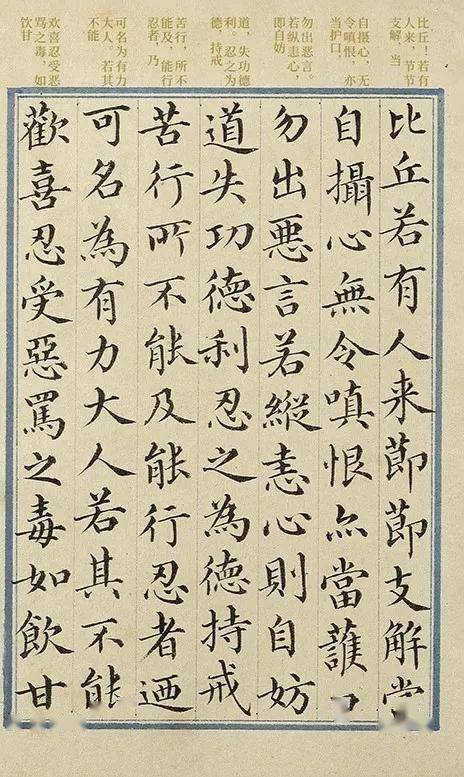 比丘！若有
人来，节节
支解，当
自摄心，无
令嗔恨，亦
当护口，
勿出恶言。
若纵恚心，
即自妨
道，失功德
利。忍之为
德，持戒
苦行，所不
能及，能行
忍者，乃
可名为有力
大人。若其
不能
欢喜忍受恶
骂之毒，如
饮甘
比丘若有人来節節支解當
自攝心無令嗔恨亦當護
勿出惡言若縱恚心則自妨
道失功德利忍之為德持戒
苦行所不能及能行忍者迺
可名為有力大人若其不能
歡喜忍受惡罵之毒如飲甘